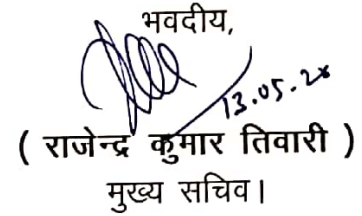 भवदीय,
13.05.20
( राजेन्द्र कुमार तिवारी )
मुख्य सचिव।